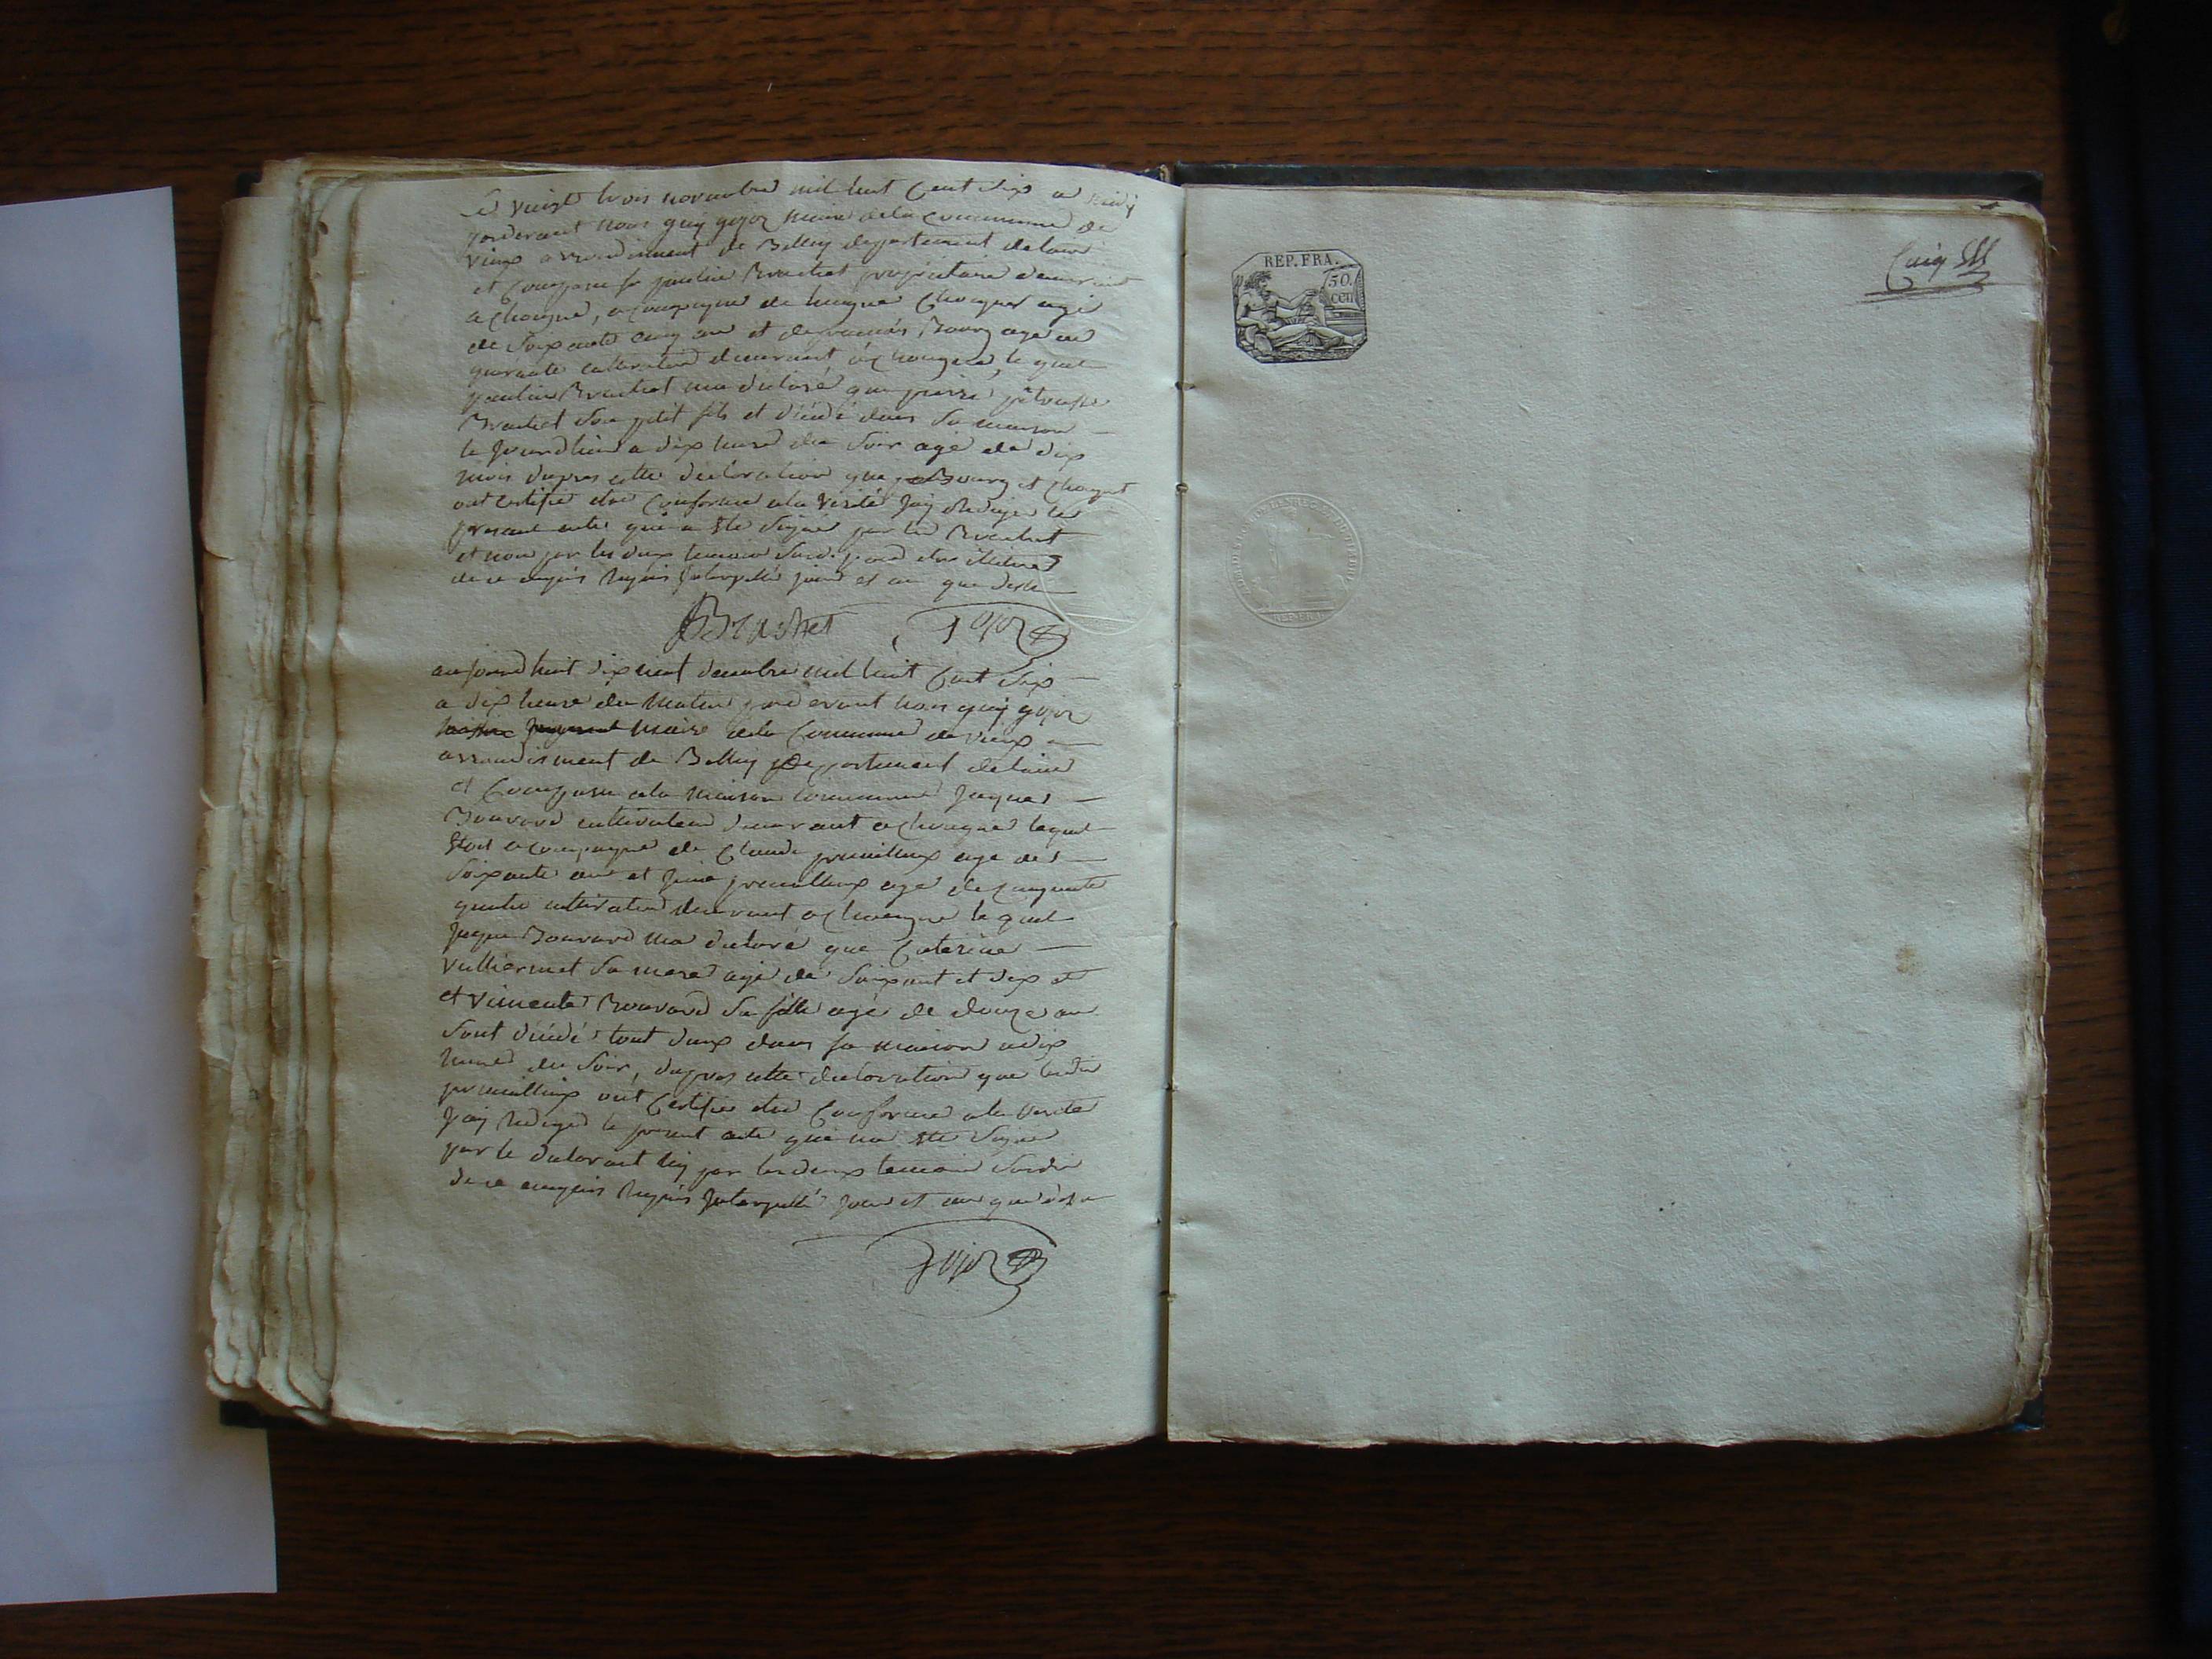 Le vingt trois novembre mil huit Cent six a midy
pardevant nous guy gojoz Maire de la Commune de
vieux arrondiment de Belley departement de lain
et Comparu propriétaire demeurant
a Chongne, acompagné de hugue Choquet agé
de soixante cinq ans et de Bourg agé de
quarante cultivateur demeurant a Chongne, le quel
Brachet ma declaré que pierre
Brachet son petit fils et décédé dans sa maison
le jourdhui a dix heure du soir agé de dix
mois dapres cette declaration que Bourg et Choquet
ont certifié etre Conforme a la verité Jay redigé le
present acte qui a eté signé par led Brachet
et non par les deux temoin
de ce enquis requis Interpellé jour et an que dessu
Brachet gojoz
aujourdhuit dix neuf decembre mil huit Cent Six
a dix heure du matin pardevant nous guy gojoz
Maire de la Commune de vieux
arrondisment de Belley Departement de lain
et Comparu a la Maison Commune Jaques
Bouvard cultivateur demeurant a Chongne lequel
etoit acompagné de Claude premillieux agé de
soixante ans et premillieux agé de cinquante
quatre cultivateur demeurant a Chongne lequel
Jaque Bouvard ma declaré que Caterine
Vulliermet sa mere agé de soixant et dix
et vincente Bouvard sa fille agé de douze an
sont décédé tout deux dans sa maison a dix
heure du soir, dapres cette declaration que
premillieux ont Certifié etre Conforme a la verité
Jay redigé le present acte qui na eté signé
par le declarant ny par les deux temoin
de ce enquis requis Interpellé jour et an que dessu
gojoz
REP. FRA.
50.
cen.
Cuiq